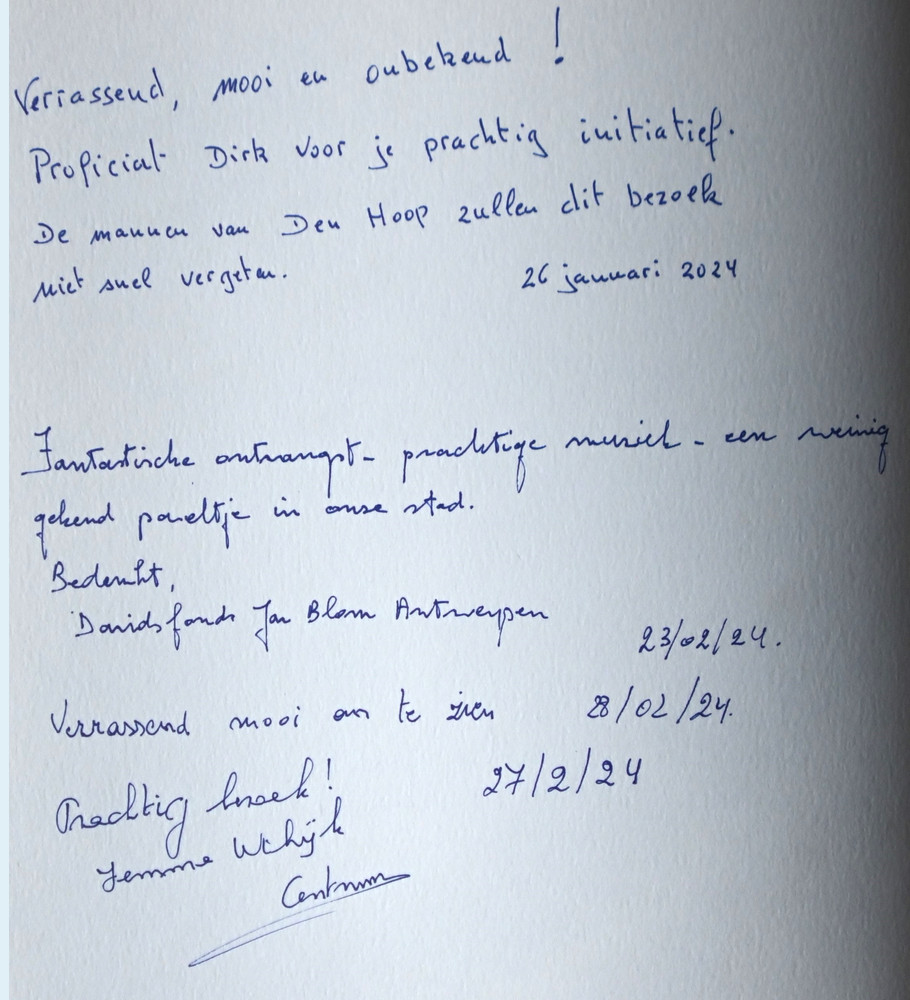 Verrassend, mooi en onbekend !
Proficiat Dirk voor je prachtig initiatief.
De mannen van Den Hoop zullen dit bezoek
niet snel vergeten. 26 januari 2024
Fantastische ontvangst - prachtige muziek - een weinig
gekend pareltje in onze stad.
Bedankt,
Davidsfonds Jan Blom Antwerpen
23/02/24.
Verrassend mooi om te zien 28/02/24.
Prachtig bezoek! 27/2/24
Femma
Centrum